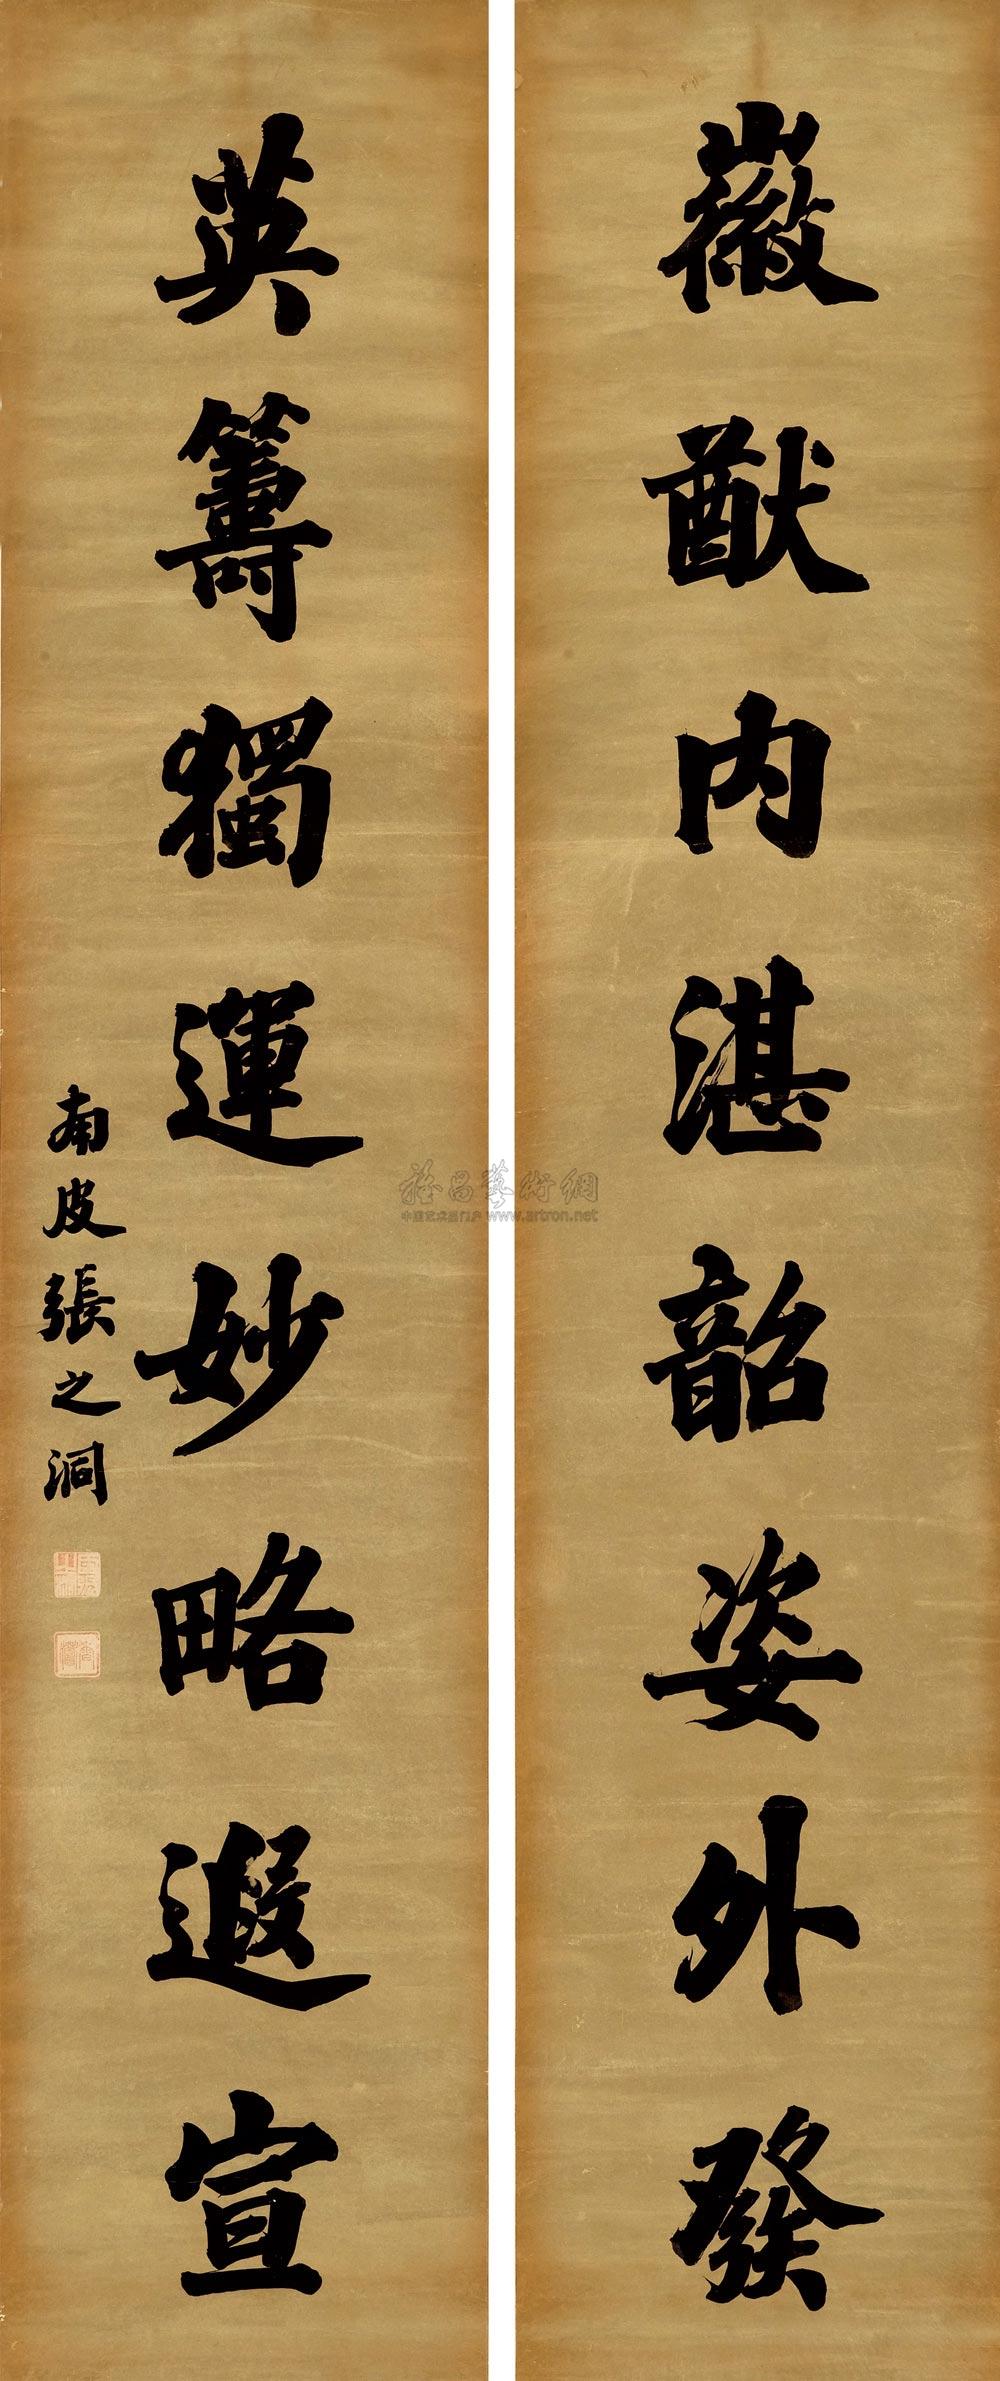 徽猷内湛韶姿外發
英籌獨運妙略遐宣
南皮張之洞
雅昌藝術網
中国艺术品门户 www.artron.net